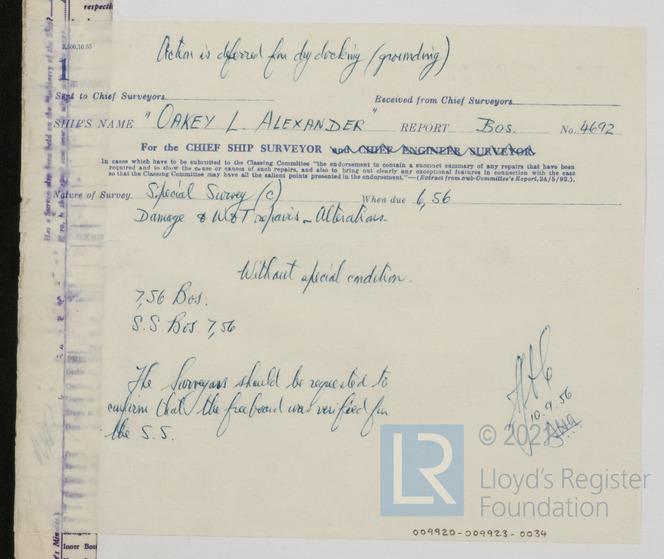 respecti
2,500,10.55
1
Action is deferred for dry docking (grounding)
Sent to Chief Surveyors
Received from Chief Surveyors
SHIP'S NAME "OAKEY L. ALEXANDER" REPORT Bos. No. 4692
For the CHIEF SHIP SURVEYOR and CHIEF ENGINEER SURVEYOR.
In cases which have to be submitted to the Classing Committee "the endorsement to contain a succinct summary of any repairs that have been
required and to show the cause or causes of such repairs, and also to bring out clearly any exceptional features in connection with the case
so that the Classing Committee may have all the salient points presented in the endorsement."—(Extract from sub-Committee's Report, 24/5/92.).
Nature of Survey Special Survey (c) When due 6,56
Damage & W&T repairs - Alterations.
Without special condition.
7,56 Bos.
S.S. Bos. 7,56
The Surveyors should be requested to
confirm that the freeboard was verified for
the S.S.
10.9.56
LR
Lloyd's Register
Foundation
009920-009923-0034
Inner Bot